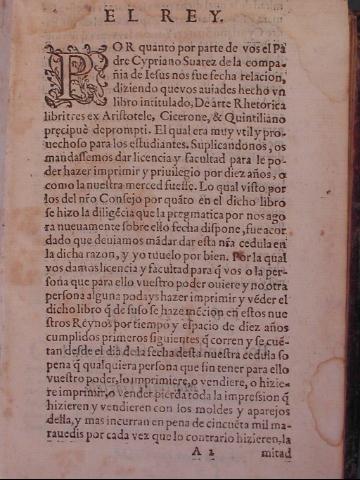 EL REY.
POR quanto por parte de vos el Pa
dre Cypriano Suarez de la compa-
ñia de Iesus nos fue fecha relacion,
diziendo que vos auiades hecho vn
libro intitulado, De arte Rhetorica
libri tres ex Aristotele, Cicerone, & Quintiliano
præcipuè deprompti. El qual era muy vtil y pro-
uechoso para los estudiantes. Suplicandonos, os
mandassemos dar licencia y facultad para le po-
der hazer imprimir y priuilegio por diez años, o
como la nuestra merced fuesse. Lo qual visto por
los del nr̃o Consejo por quãto en el dicho libro
se hizo la diligẽcia que la pregmatica por nos ago
ra nueuamente sobre ello fecha dispone, fue acor
dado que deuiamos mãdar dar esta nr̃a cedula en
la dicha razon, y yo tuuelo por bien. Por la qual
vos damos licencia y facultad para q̃ vos o la per-
sona que para ello vuestro poder ouiere y no otra
persona alguna podays hazer imprimir y vẽder el
dicho libro q̃ de suso se haze mẽcion en estos nue
stros Reynos por tiempo y espacio de diez años
cumplidos primeros siguientes q̃ corren y se cuẽ-
tan desde el dia de la fecha desta nuestra cedula so
pena q̃ qualquiera persona que sin tener para ello
vuestro poder, lo imprimiere, o vendiere, o hizie-
re imprimir, o vender pierda toda la impression q̃
hizieren y vendieren con los moldes y aparejos
della, y mas incurran en pena de cincuẽta mil ma-
rauedis por cada vez que lo contrario hizieren, la
A 2 mitad